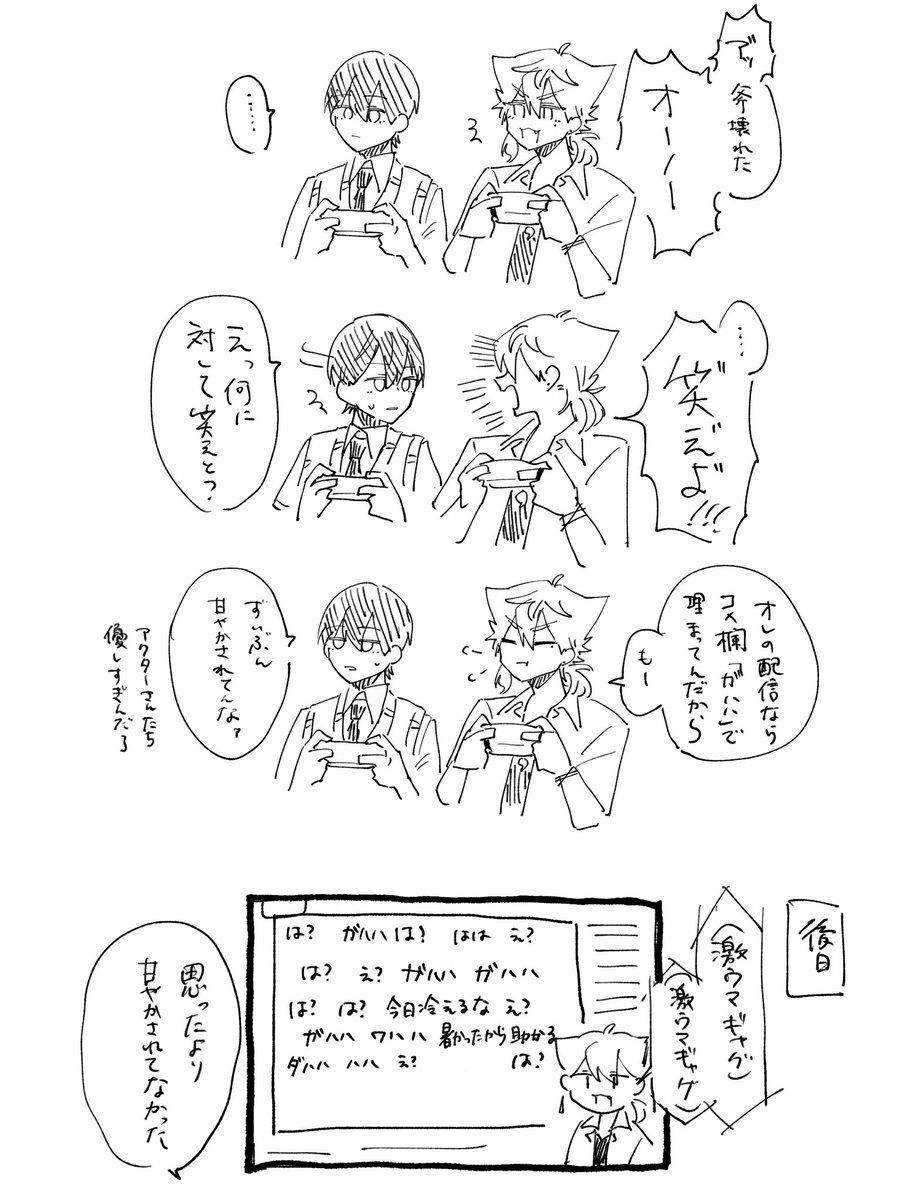 でッ
斧壊れた
オーノー
……
……
笑えよ!!!
えっ何に
対して笑えと?
オレの配信なら
コメ欄「ガハハ」で
埋まってんだから
もー
ずいぶん
甘やかされてんな?
アクターさんたち
優しすぎんだろ
後日
(激ウマギャグ)
(激ウマギャグ)
は? ガハハ は? ははは え?
は? え? ガハハ ガハハハ
は? は? 今日冷えるな え?
ガハハハ ワハハハ 暑かったから助かる
ダハハハ ハハハ え? は?
思ったより
甘やかされてなかった